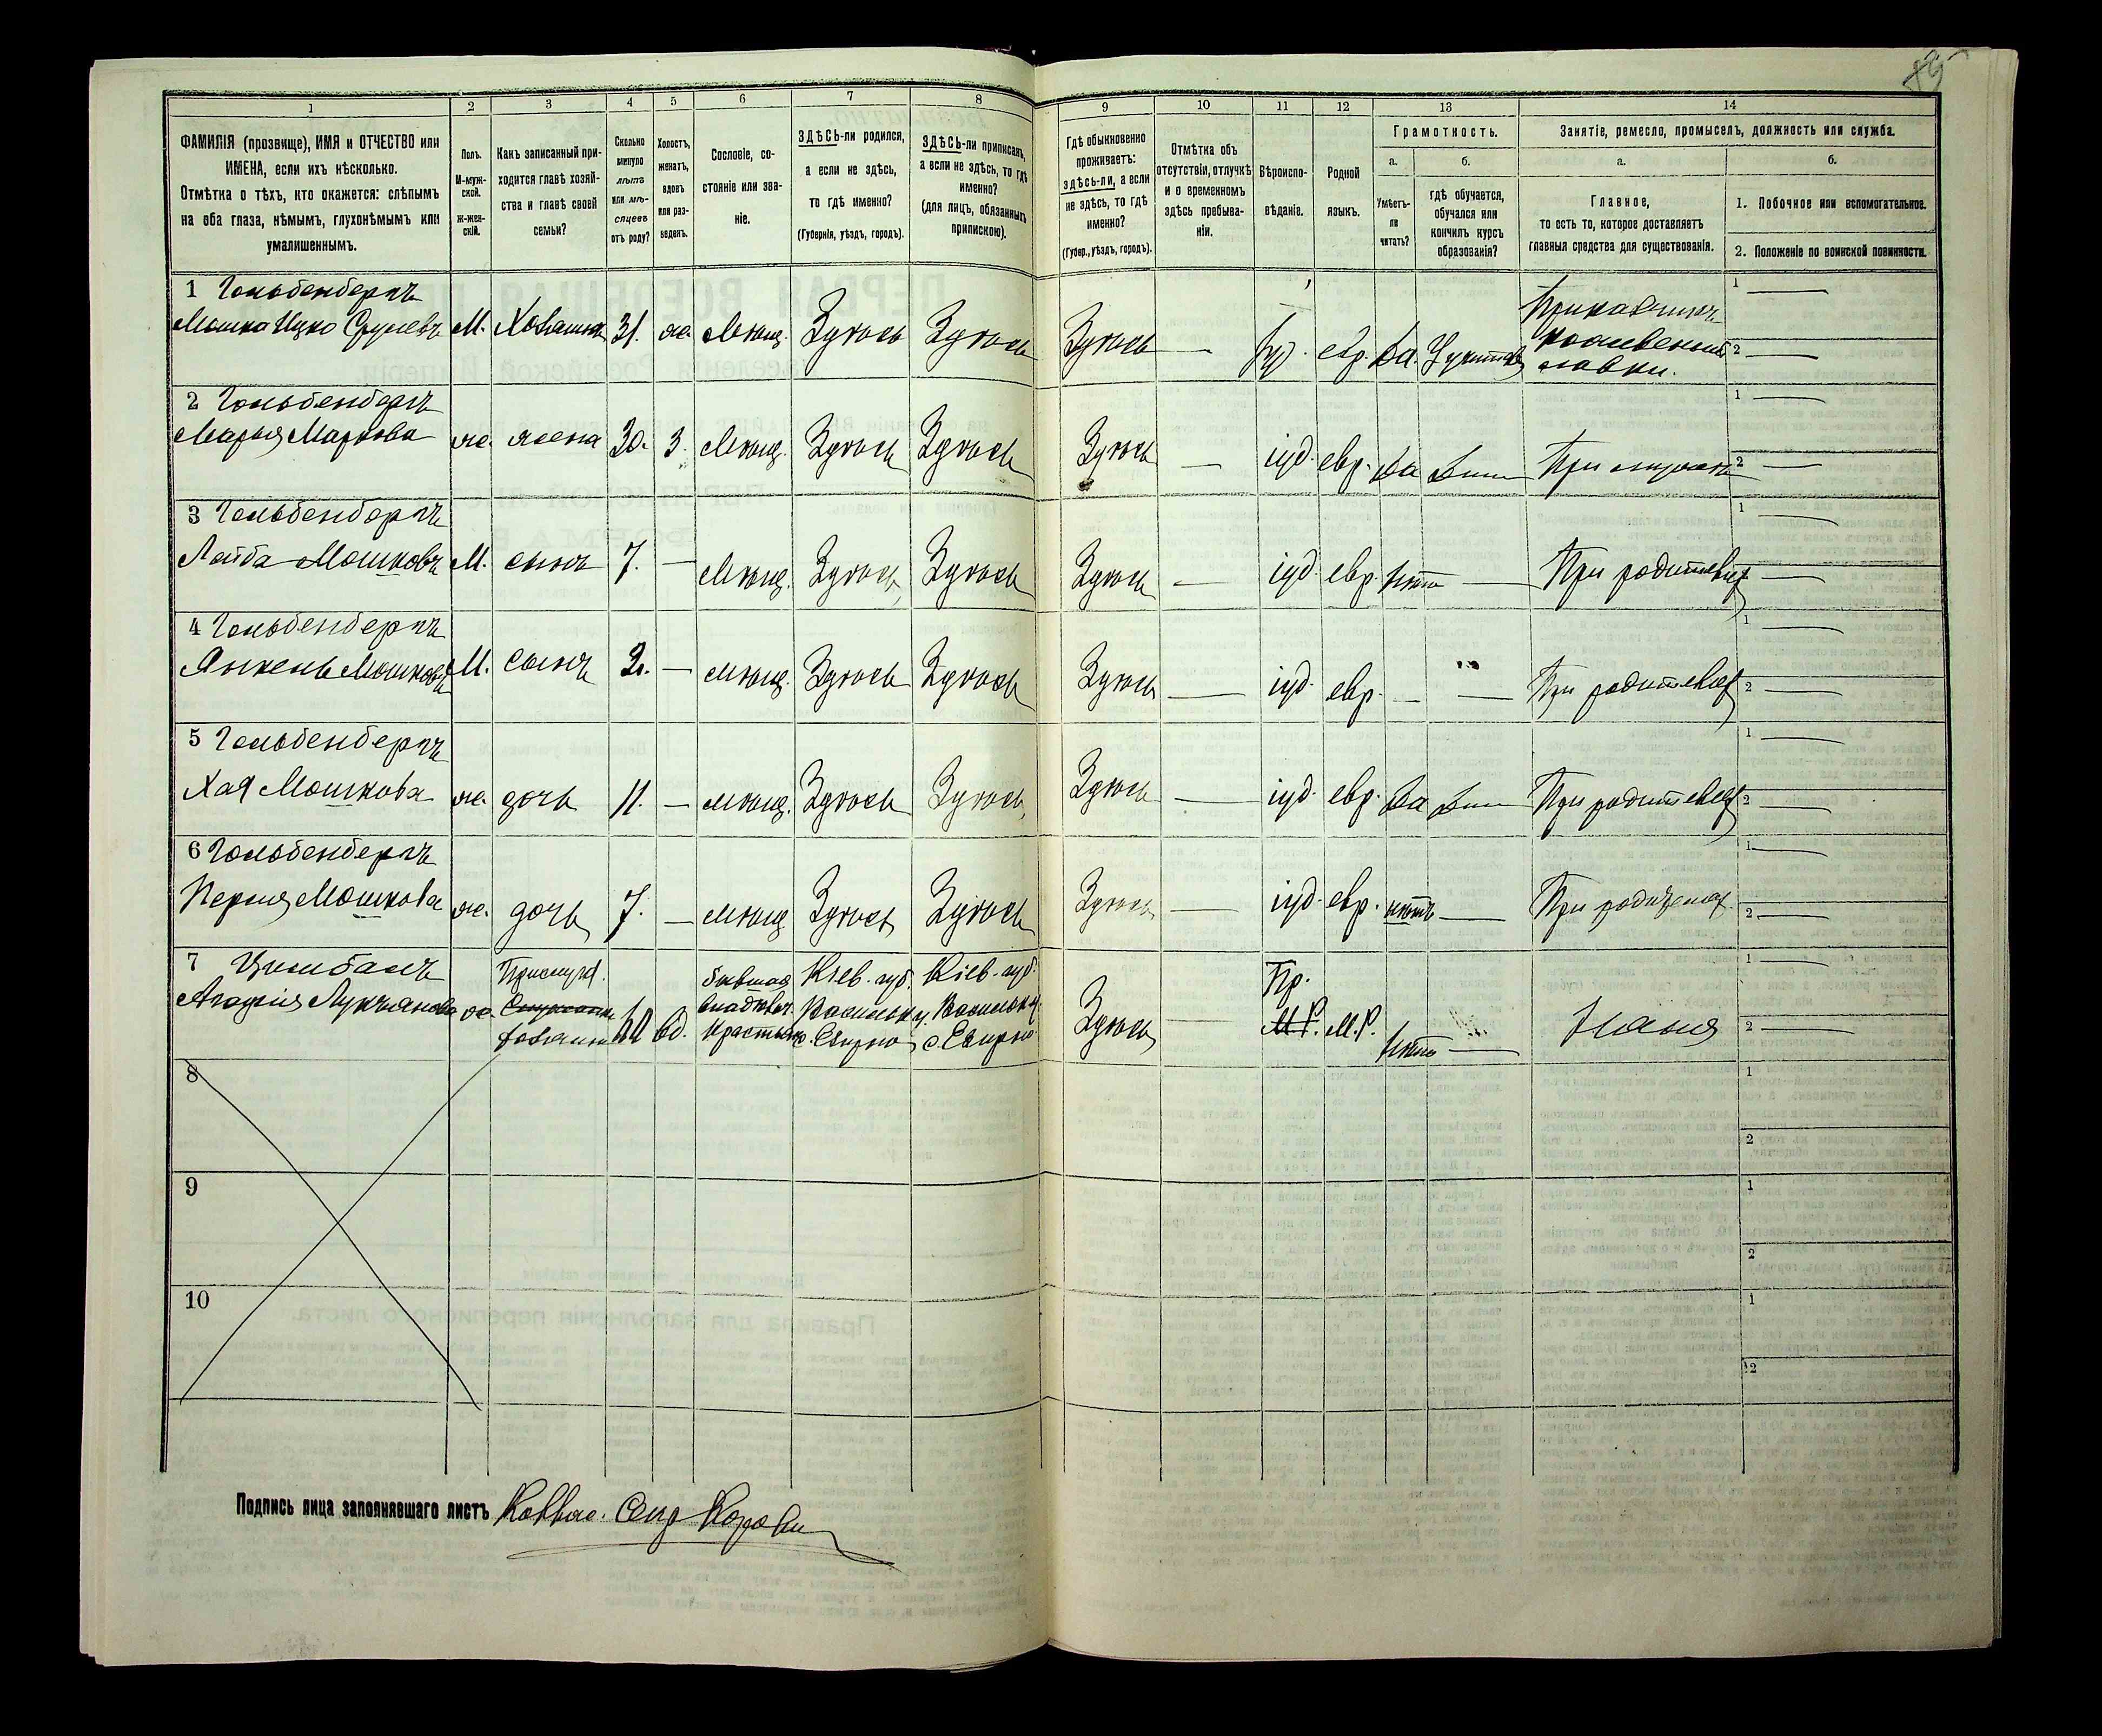 1 2 3 4 5 6 7 8 9 10 11 12 13 14
ФАМИЛІЯ (прозвище), ИМЯ и ОТЧЕСТВО или
ИМЕНА, если ихъ нѣсколько.
Отмѣтка о тѣхъ, кто окажется: слѣпымъ
на оба глаза, нѣмымъ, глухонѣмымъ или
умалишеннымъ.
Полъ.
М-муж-
ской.
Ж-жен-
скій.
Какъ записанный при-
ходится главѣ хозяй-
ства и главѣ своей
семьи?
Сколько
минуло
лѣтъ
или мѣ-
сяцевъ
отъ роду?
Холостъ,
женатъ,
вдовъ
или раз-
веденъ.
Сословіе, со-
стояніе или зва-
ніе.
ЗДѢСЬ-ли родился,
а если не здѣсь,
то гдѣ именно?
(Губернія, уѣздъ, городъ).
ЗДѢСЬ-ли приписанъ,
а если не здѣсь, то гдѣ
именно?
(для лицъ, обязанныхъ
припискою).
Гдѣ обыкновенно
проживаетъ:
здѣсь-ли, а если
не здѣсь, то гдѣ
именно?
(Губер., уѣздъ, городъ).
Отмѣтка объ
отсутствіи, отлучкѣ
и о временномъ
здѣсь пребыва-
ніи.
Вѣроиспо-
вѣданіе.
Родной
языкъ.
Грамотность.
а.
Умѣетъ-
ли
читать?
б.
гдѣ обучается,
обучался или
кончилъ курсъ
образованія?
Занятіе, ремесло, промыселъ, должность или служба.
а.
Главное,
то есть то, которое доставляетъ
главныя средства для существованія.
б.
1. Побочное или вспомогательное.
2. Положеніе по воинской повинности.
1 Гольденбергъ
Мошко Ицко М. Хозяинъ 31. ж. Мѣщ. Здѣсь Здѣсь Здѣсь — Іуд. евр. Да.
Приказчикъ
лавки.
1 —
2 —
2 Гольденбергъ
Марья Маркова ж. жена 30. З. Мѣщ. Здѣсь Здѣсь Здѣсь — іуд. евр. Да При
1 —
2 —
3 Гольденбергъ
Лейба Мошковъ М. сынъ 7. — Мѣщ. Здѣсь Здѣсь Здѣсь — іуд. евр. нѣтъ — При родителяхъ
1 —
2 —
4 Гольденбергъ
Янкель Мошковъ М. Сынъ 2. — мѣщ. Здѣсь Здѣсь Здѣсь — іуд. евр. — — При родителяхъ
1 —
2 —
5 Гольденбергъ
Хая Мошкова ж. дочь 11. — мѣщ. Здѣсь Здѣсь Здѣсь — іуд. евр. Да При родителяхъ
1 —
2 —
6 Гольденбергъ
Перля Мошкова ж. дочь 7. — мѣщ Здѣсь Здѣсь Здѣсь — іуд. евр. нѣтъ — При родителях.
1 —
2 —
7 Цимбалъ
Агафія Лукьянова ж.
Прислуга.
хозяина
вд.
бывшая
Владѣльч.
Крестьян.
Кіев. губ.
Васильк. у.
Кіев. губ.
Васильк. у.
Здѣсь —
Пр.
М.Р. М.Р. нѣтъ — Няня
1 —
2 —
8
1
2
9
1
2
10
1
2
Подпись лица заполнявшаго листъ